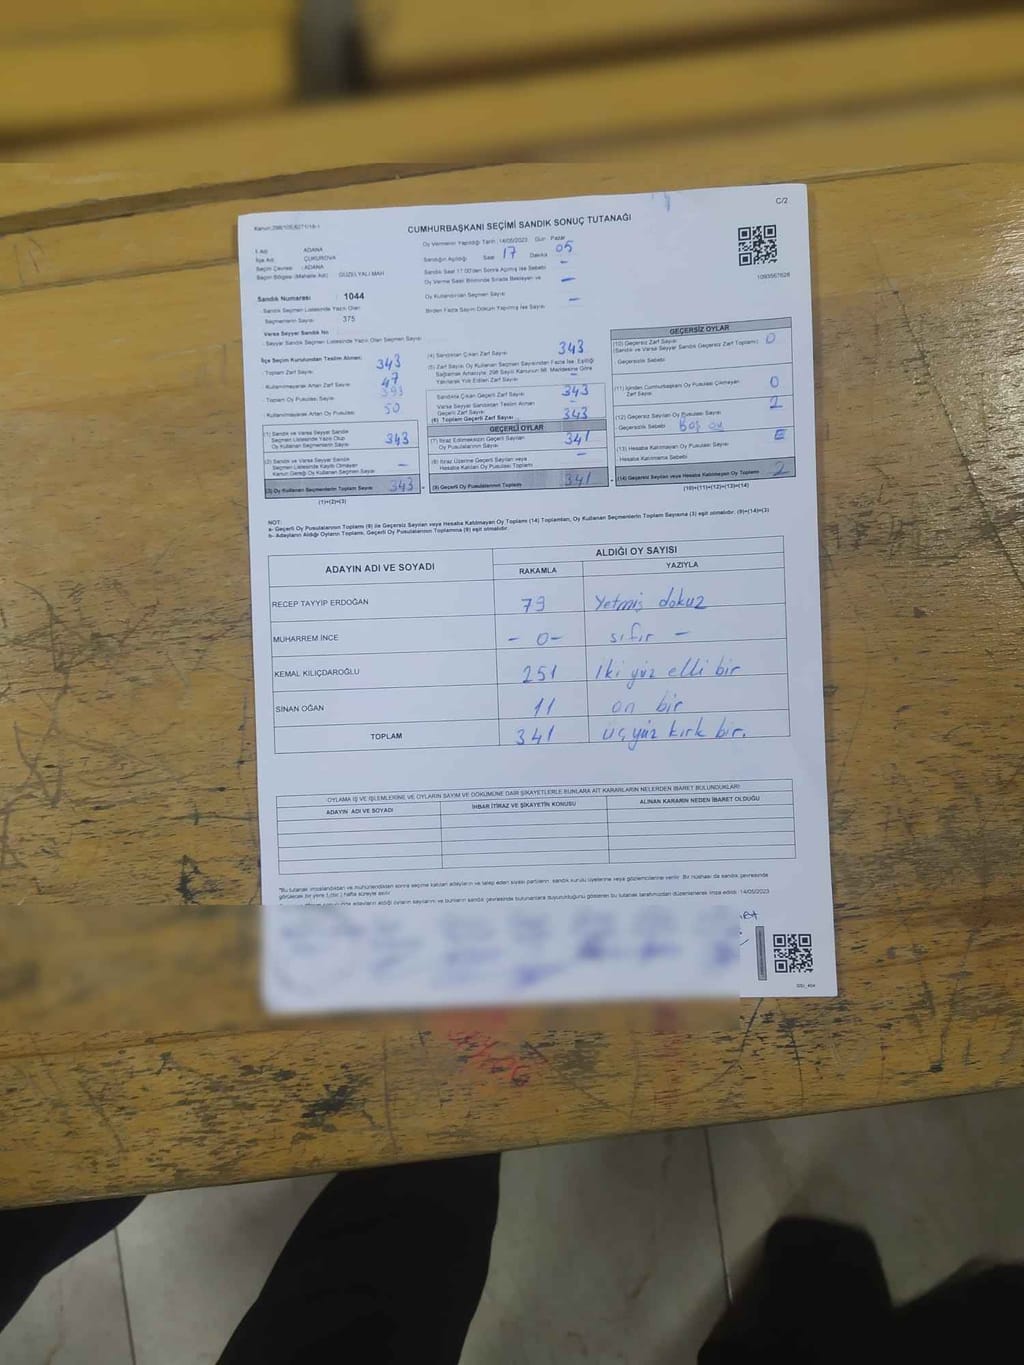 C/2
CUMHURBAŞKANI SEÇİMİ SANDIK SONUÇ TUTANAĞI
İl Adı: ADANA
İlçe Adı: ÇUKUROVA
Seçim Çevresi : ADANA
Seçim Bölgesi (Mahalle Adı): GÜZELYALI MAH
Oy Vermenin Yapıldığı Tarih :14/05/2023 Gün : Pazar
Sandığın Açıldığı Saat 17 Dakika 05
Sandık Saat 17:00'den Sonra Açılmış İse Sebebi –
Oy Verme Saati Bitiminde Sırada Bekleyen ve –
Oy Kullandırılan Seçmen Sayısı
Birden Fazla Sayım Döküm Yapılmış İse Sayısı –
1093567628
Sandık Numarası 1044
Sandık Seçmen Listesinde Yazılı Olan
Seçmenlerin Sayısı: 375
Varsa Seyyar Sandık No
Seyyar Sandık Seçmen Listesinde Yazılı Olan Seçmen Sayısı
İlçe Seçim Kurulundan Teslim Alınan;
Toplam Zarf Sayısı 343
Kullanılmayarak Artan Zarf Sayısı 47
Toplam Oy Pusulası Sayısı
Kullanılmayarak Artan Oy Pusulası 50
(1) Sandık ve Varsa Seyyar Sandık
Seçmen Listesinde Yazılı Olup
Oy Kullanan Seçmenlerin Sayısı 343
(2) Sandık ve Varsa Seyyar Sandık
Seçmen Listesinde Kayıtlı Olmayan
Kanun Gereği Oy Kullanan Seçmen Sayısı –
(3) Oy Kullanan Seçmenlerin Toplam Sayısı 343
(1)+(2)=(3)
(4) Sandıktan Çıkan Zarf Sayısı 343
(5) Zarf Sayısı Oy Kullanan Seçmen Sayısından Fazla İse, Eşitliği
Sağlamak Amacıyla, 298 Sayılı Kanunun 98. Maddesine Göre
Yakılarak Yok Edilen Zarf Sayısı –
Sandıkta Çıkan Geçerli Zarf Sayısı 343
Varsa Seyyar Sandıktan Teslim Alınan
Geçerli Zarf Sayısı –
(6) Toplam Geçerli Zarf Sayısı 343
GEÇERLİ OYLAR
(7) İtiraz Edilmeksizin Geçerli Sayılan
Oy Pusulalarının Sayısı 341
(8) İtiraz Üzerine Geçerli Sayılan veya
Hesaba Katılan Oy Pusulası Toplamı –
(9) Geçerli Oy Pusulalarının Toplamı 341
GEÇERSİZ OYLAR
(10) Geçersiz Zarf Sayısı 0
(Sandık ve Varsa Seyyar Sandık Geçersiz Zarf Toplamı)
Geçersizlik Sebebi
(11) İçinden Cumhurbaşkanı Oy Pusulası Çıkmayan
Zarf Sayısı 0
(12) Geçersiz Sayılan Oy Pusulası Sayısı 2
Geçersizlik Sebebi Boş oy
(13) Hesaba Katılmayan Oy Pusulası Sayısı
Hesaba Katılmama Sebebi
(14) Geçersiz Sayılan veya Hesaba Katılmayan Oy Toplamı 2
(10)+(11)+(12)+(13)=(14)
NOT:
a- Geçerli Oy Pusulalarının Toplamı (9) ile Geçersiz Sayılan veya Hesaba Katılmayan Oy Toplamı (14) Toplamları, Oy Kullanan Seçmenlerin Toplam Sayısına (3) eşit olmalıdır. (9)+(14)=(3)
b- Adayların Aldığı Oyların Toplamı, Geçerli Oy Pusulalarının Toplamına (9) eşit olmalıdır.
ADAYIN ADI VE SOYADI
ALDIĞI OY SAYISI
RAKAMLA YAZIYLA
RECEP TAYYİP ERDOĞAN 79 Yetmiş dokuz
MUHARREM İNCE – 0 – sıfır –
KEMAL KILIÇDAROĞLU 251 İki yüz elli bir
SİNAN OĞAN 11 on bir
TOPLAM 341 üç yüz kırk bir.
OYLAMA İŞ VE İŞLEMLERİNE VE OYLARIN SAYIM VE DÖKÜMÜNE DAİR ŞİKAYETLERLE BUNLARA AİT KARARLARIN NELERDEN İBARET BULUNDUKLARI
ADAYIN ADI VE SOYADI İHBAR İTİRAZ VE ŞİKAYETİN KONUSU ALINAN KARARIN NEDEN İBARET OLDUĞU